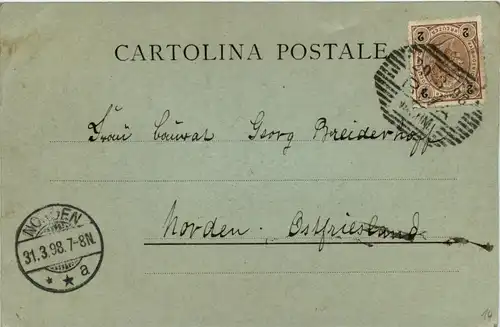 CARTOLINA POSTALE
2 2
2 2
Frau Baurat Georg Breiderhoff
Norden. Ostfriesland
NORDEN
31.3.98.7-8N.
* * a
14